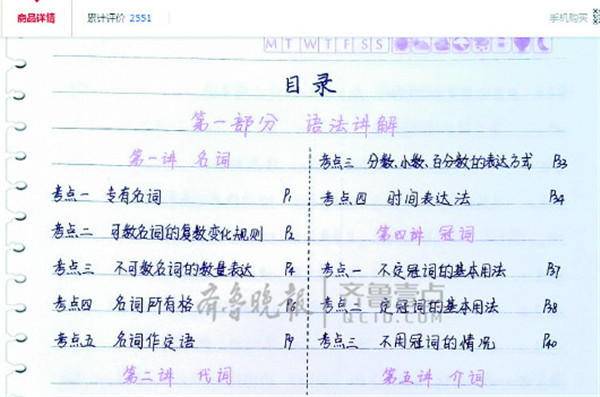 商品详情
累计评价 2551
手机购买
M T W T F S S
目录
第一部分 语法讲解
第一讲 名词
考点一 专有名词 P1
考点二 可数名词的复数变化规则 P2
考点三 不可数名词的数量表达 P4
考点四 名词所有格 P6
考点五 名词作定语 P9
第二讲 代词
考点三 分数、小数、百分数的表达方式 P33
考点四 时间表达法 P34
第四讲 冠词
考点一 不定冠词的基本用法 P37
考点二 定冠词的基本用法 P38
考点三 不用冠词的情况 P40
第五讲 介词
齐鲁晚报 齐鲁壹点
QL1D.COM